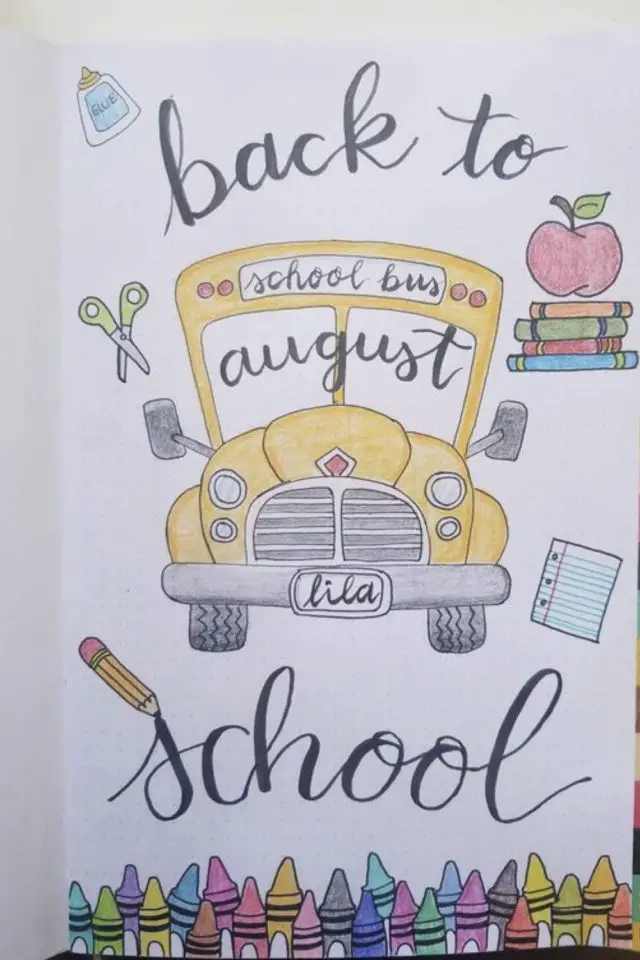 GLUE
back to
school bus
august
lila
school